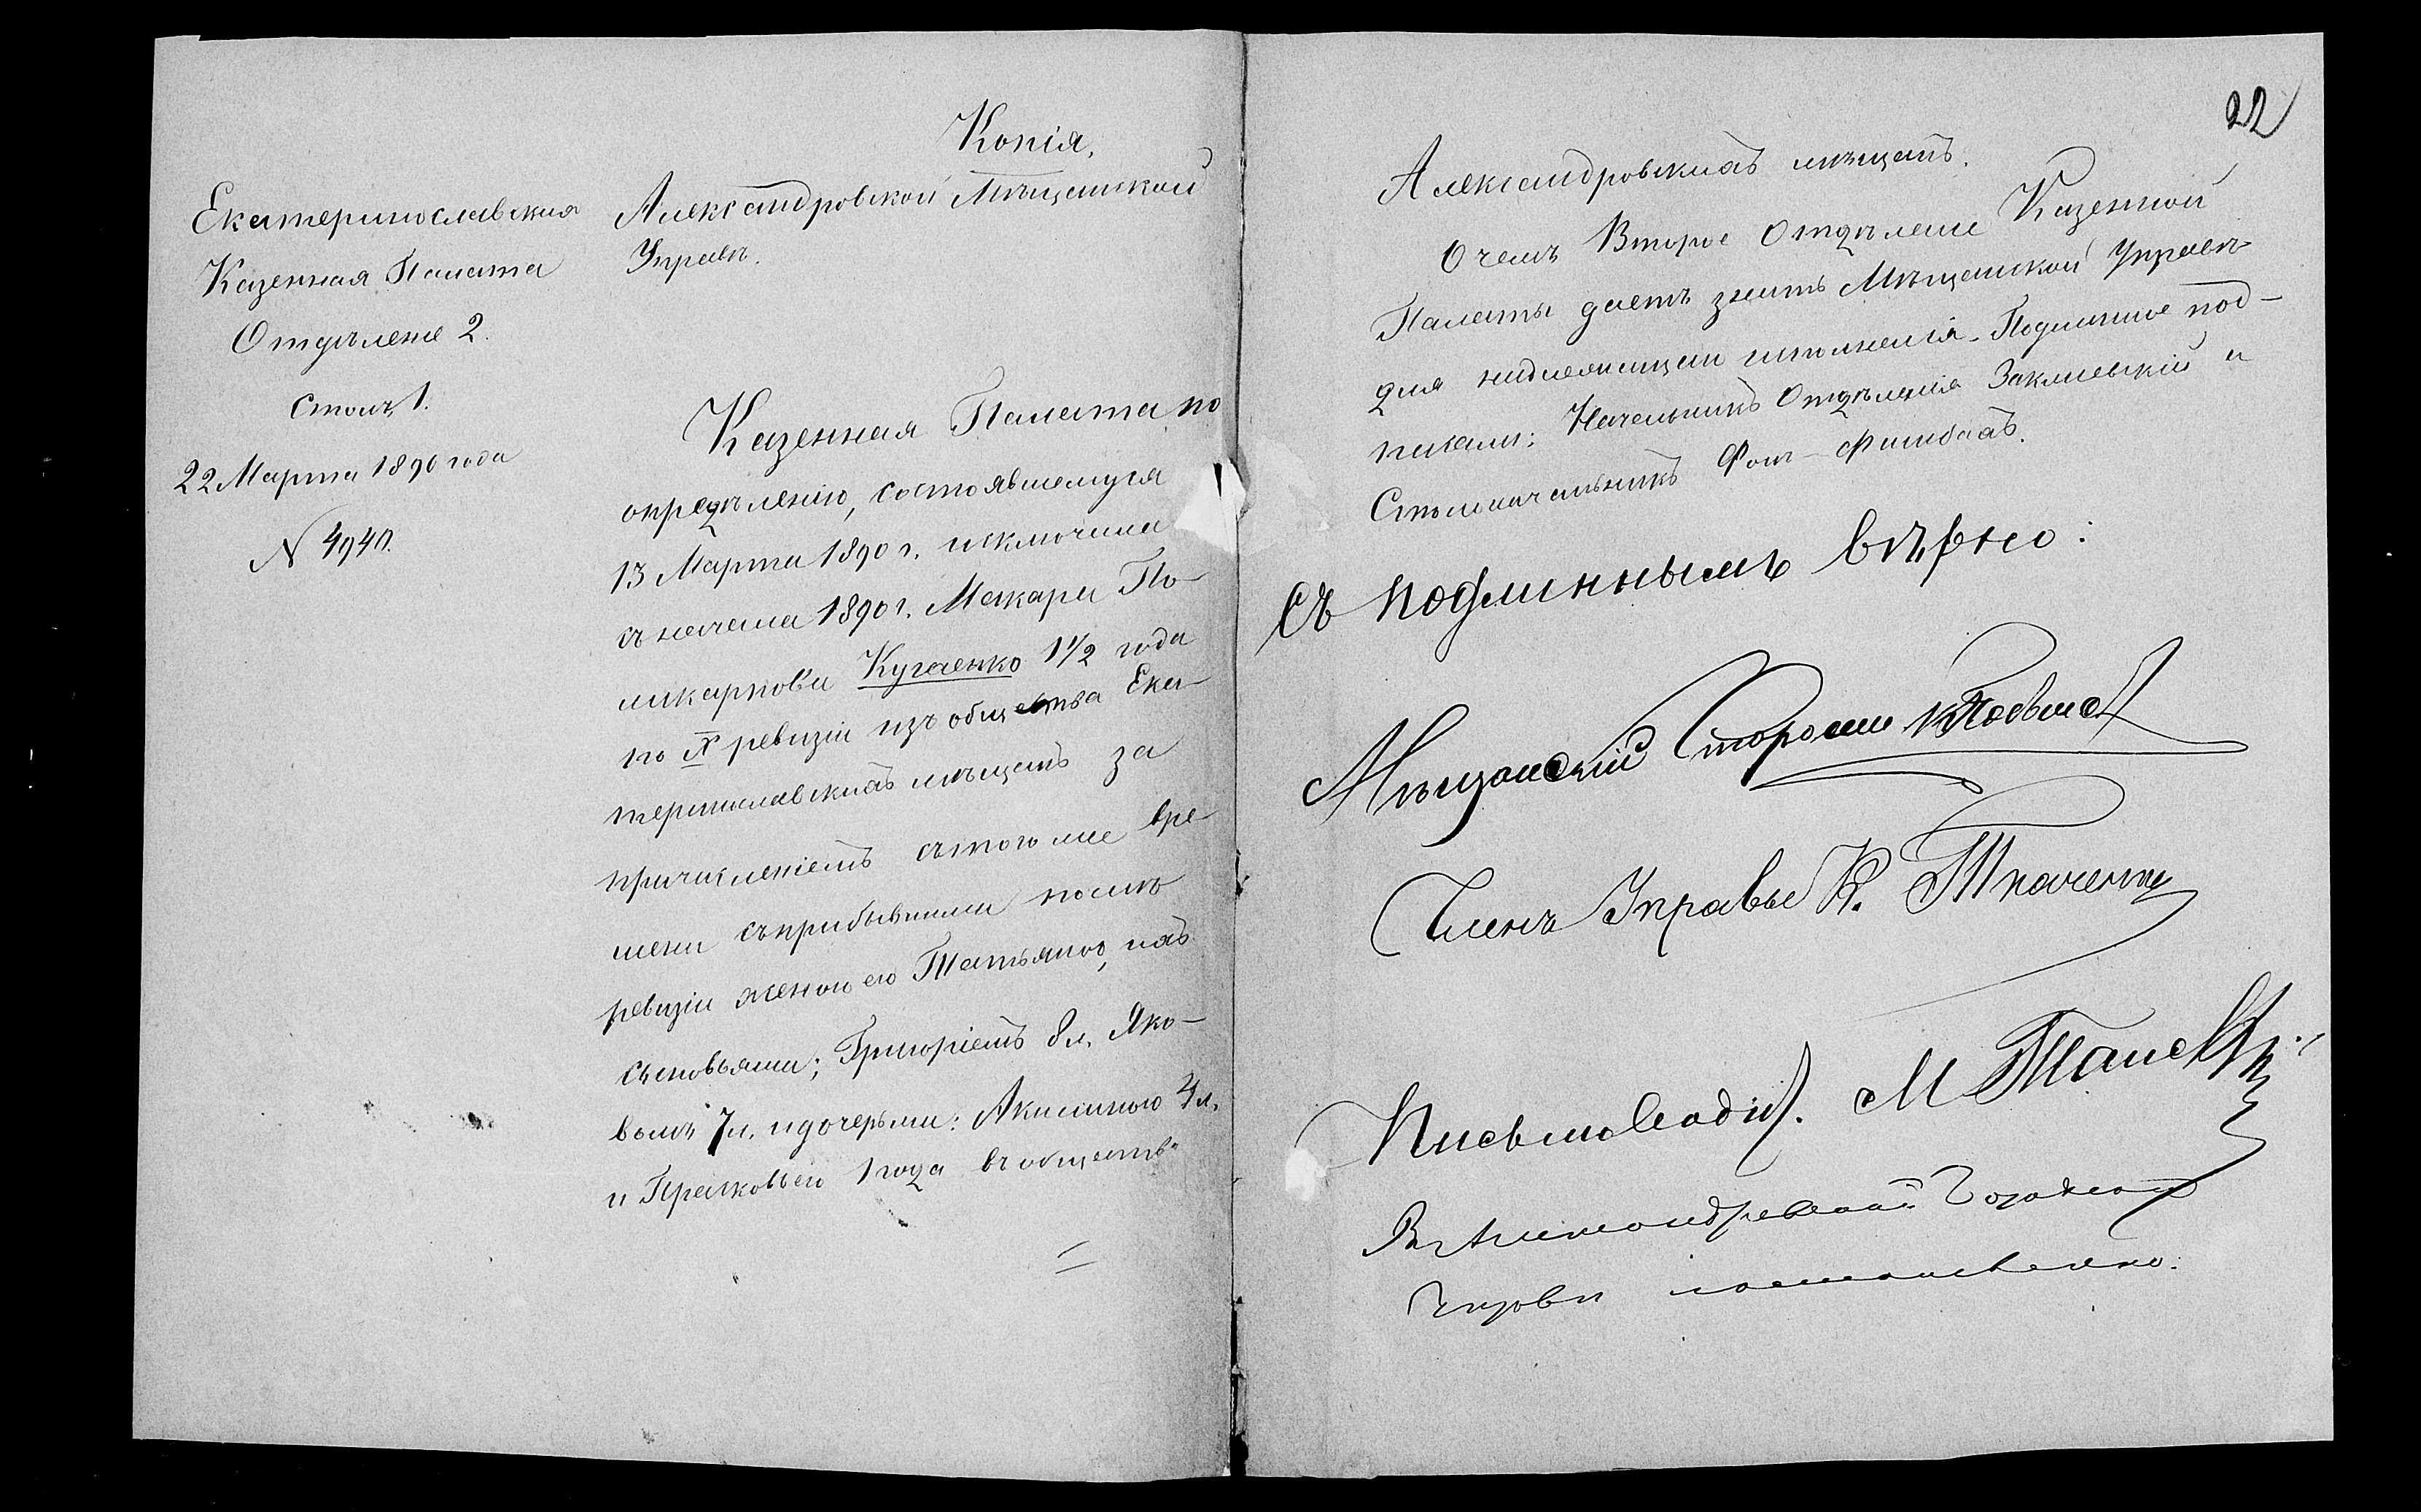 Копія,
Екатеринославская
Казенная Палата
Отдѣленіе 2.
Столъ 1.
22 Марта 1890 года
N 4940.
Александровской Мѣщанской
Управѣ.
Казенная Палата по
опредѣленію, состоявшемуся
13 Марта 1890 г. исключила
съ начала 1890 г. Макара По-
ликарпова Кугаенко 1 1/2 года
по X ревизіи изъ общества Ека-
теринославскихъ мѣщанъ за
причисленіемъ съ того же вре-
мени съ прибывшими послѣ
ревизіи женою его Татьяною, ихъ
сыновьями; Григоріемъ 8 л. Яко-
вомъ 7 л. и дочерьми: Акилиною 4 л.
и Прасковьею 1 года въ общество
22
Александровскихъ мѣщанъ.
О чемъ Второе Отдѣленіе Казенной
Палаты даетъ знать Мѣщанской Управѣ
для надлежащаго исполненія. Подлинное под-
писали: Начальникъ Отдѣленія Заклиевскій и
Столоначальникъ Фонъ-
Съ подлиннымъ вѣрно:
Мѣщанскій Староста
Членъ Управы К. Ткаченко
Письмоводит. М
Въ Александровской Городской
Управѣ